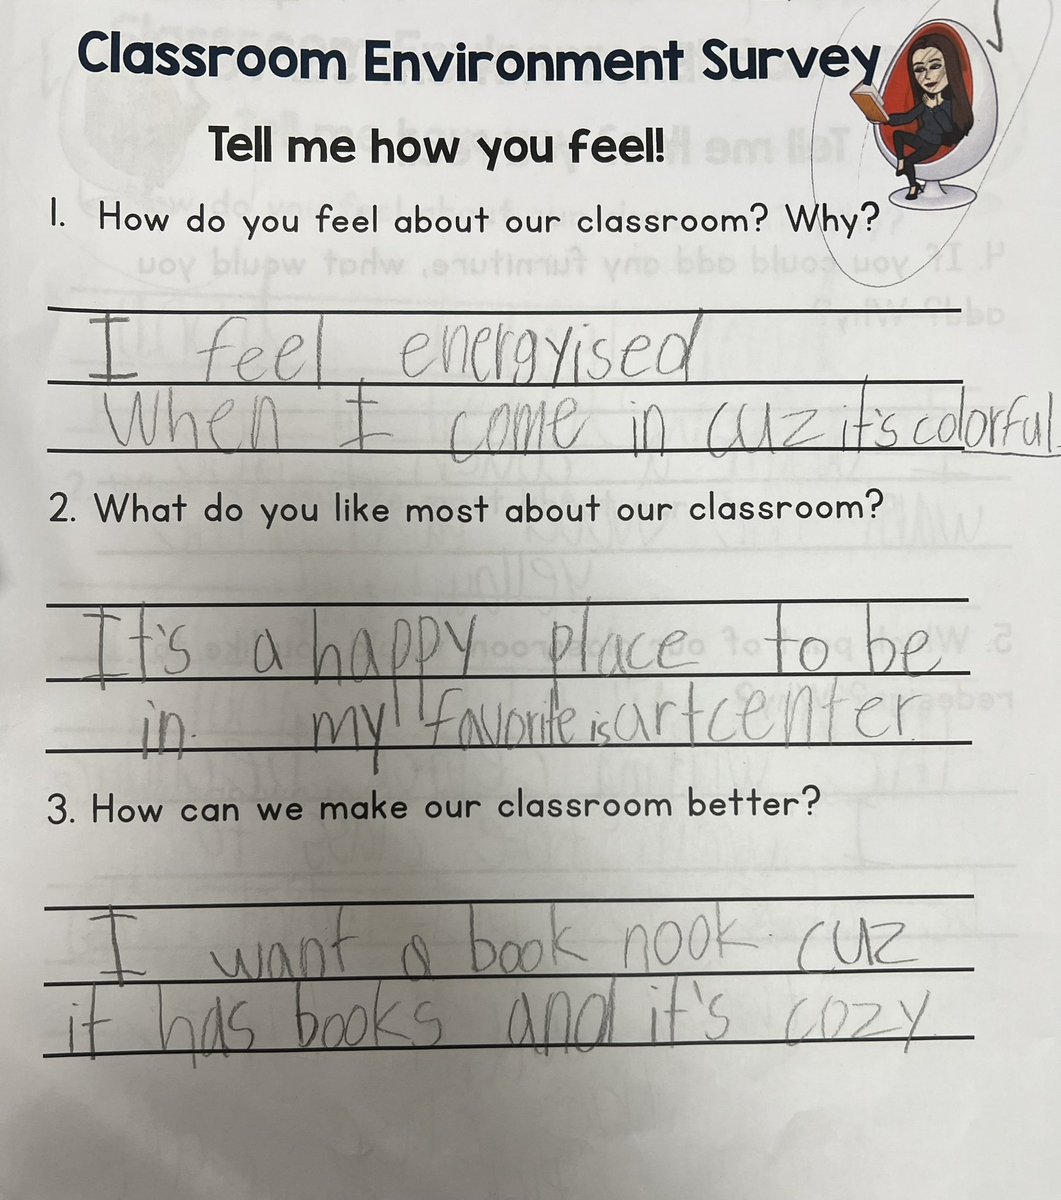 Classroom Environment Survey
Tell me how you feel!
1. How do you feel about our classroom? Why?
I feel energyised
When I come in cuz it's colorful
2. What do you like most about our classroom?
It's a happy place to be
in. my favorite is artcenter
3. How can we make our classroom better?
I want a book nook cuz
it has books and it's cozy